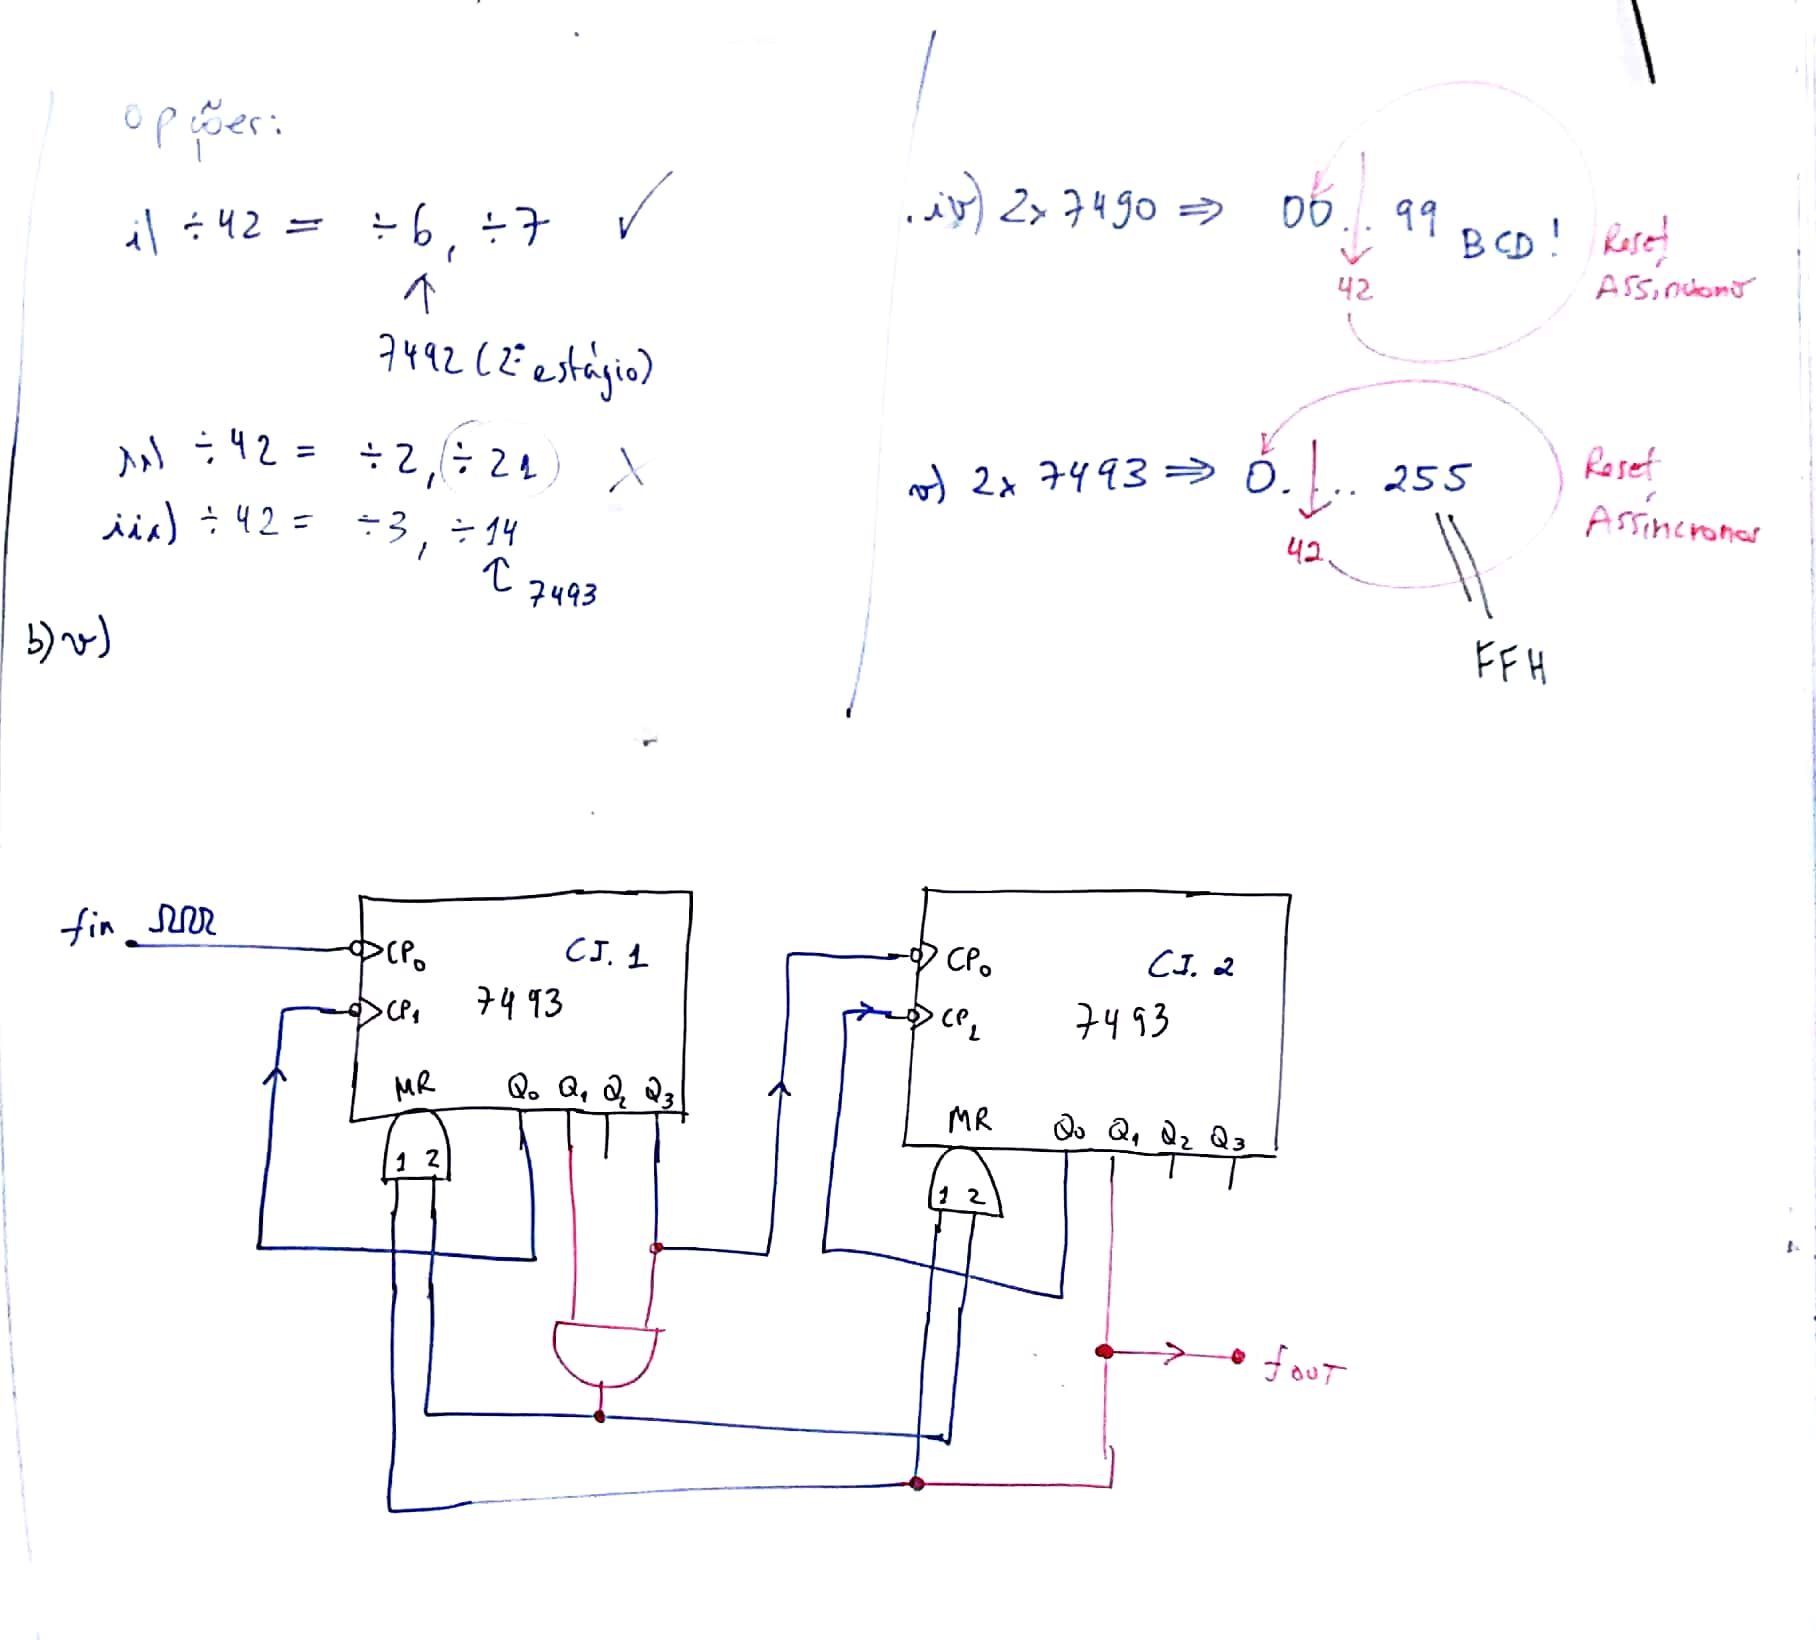 opções:
i) ÷42 = ÷6, ÷7 ✓
↑
7492 (2º estágio)
ii) ÷42 = ÷2, ÷21 X
iii) ÷42 = ÷3, ÷14
↑ 7493
b) v)
iv) 2x 7490 ⇒ 00... 99 BCD!
42
Reset
Assíncrono
v) 2x 7493 ⇒ 0.... 255
42
Reset
Assíncronos
FFH
fin
CP0
CP1
CI. 1
7493
MR Q0 Q1 Q2 Q3
1 2
CP0
CP1
CI. 2
7493
MR Q0 Q1 Q2 Q3
1 2
fOUT